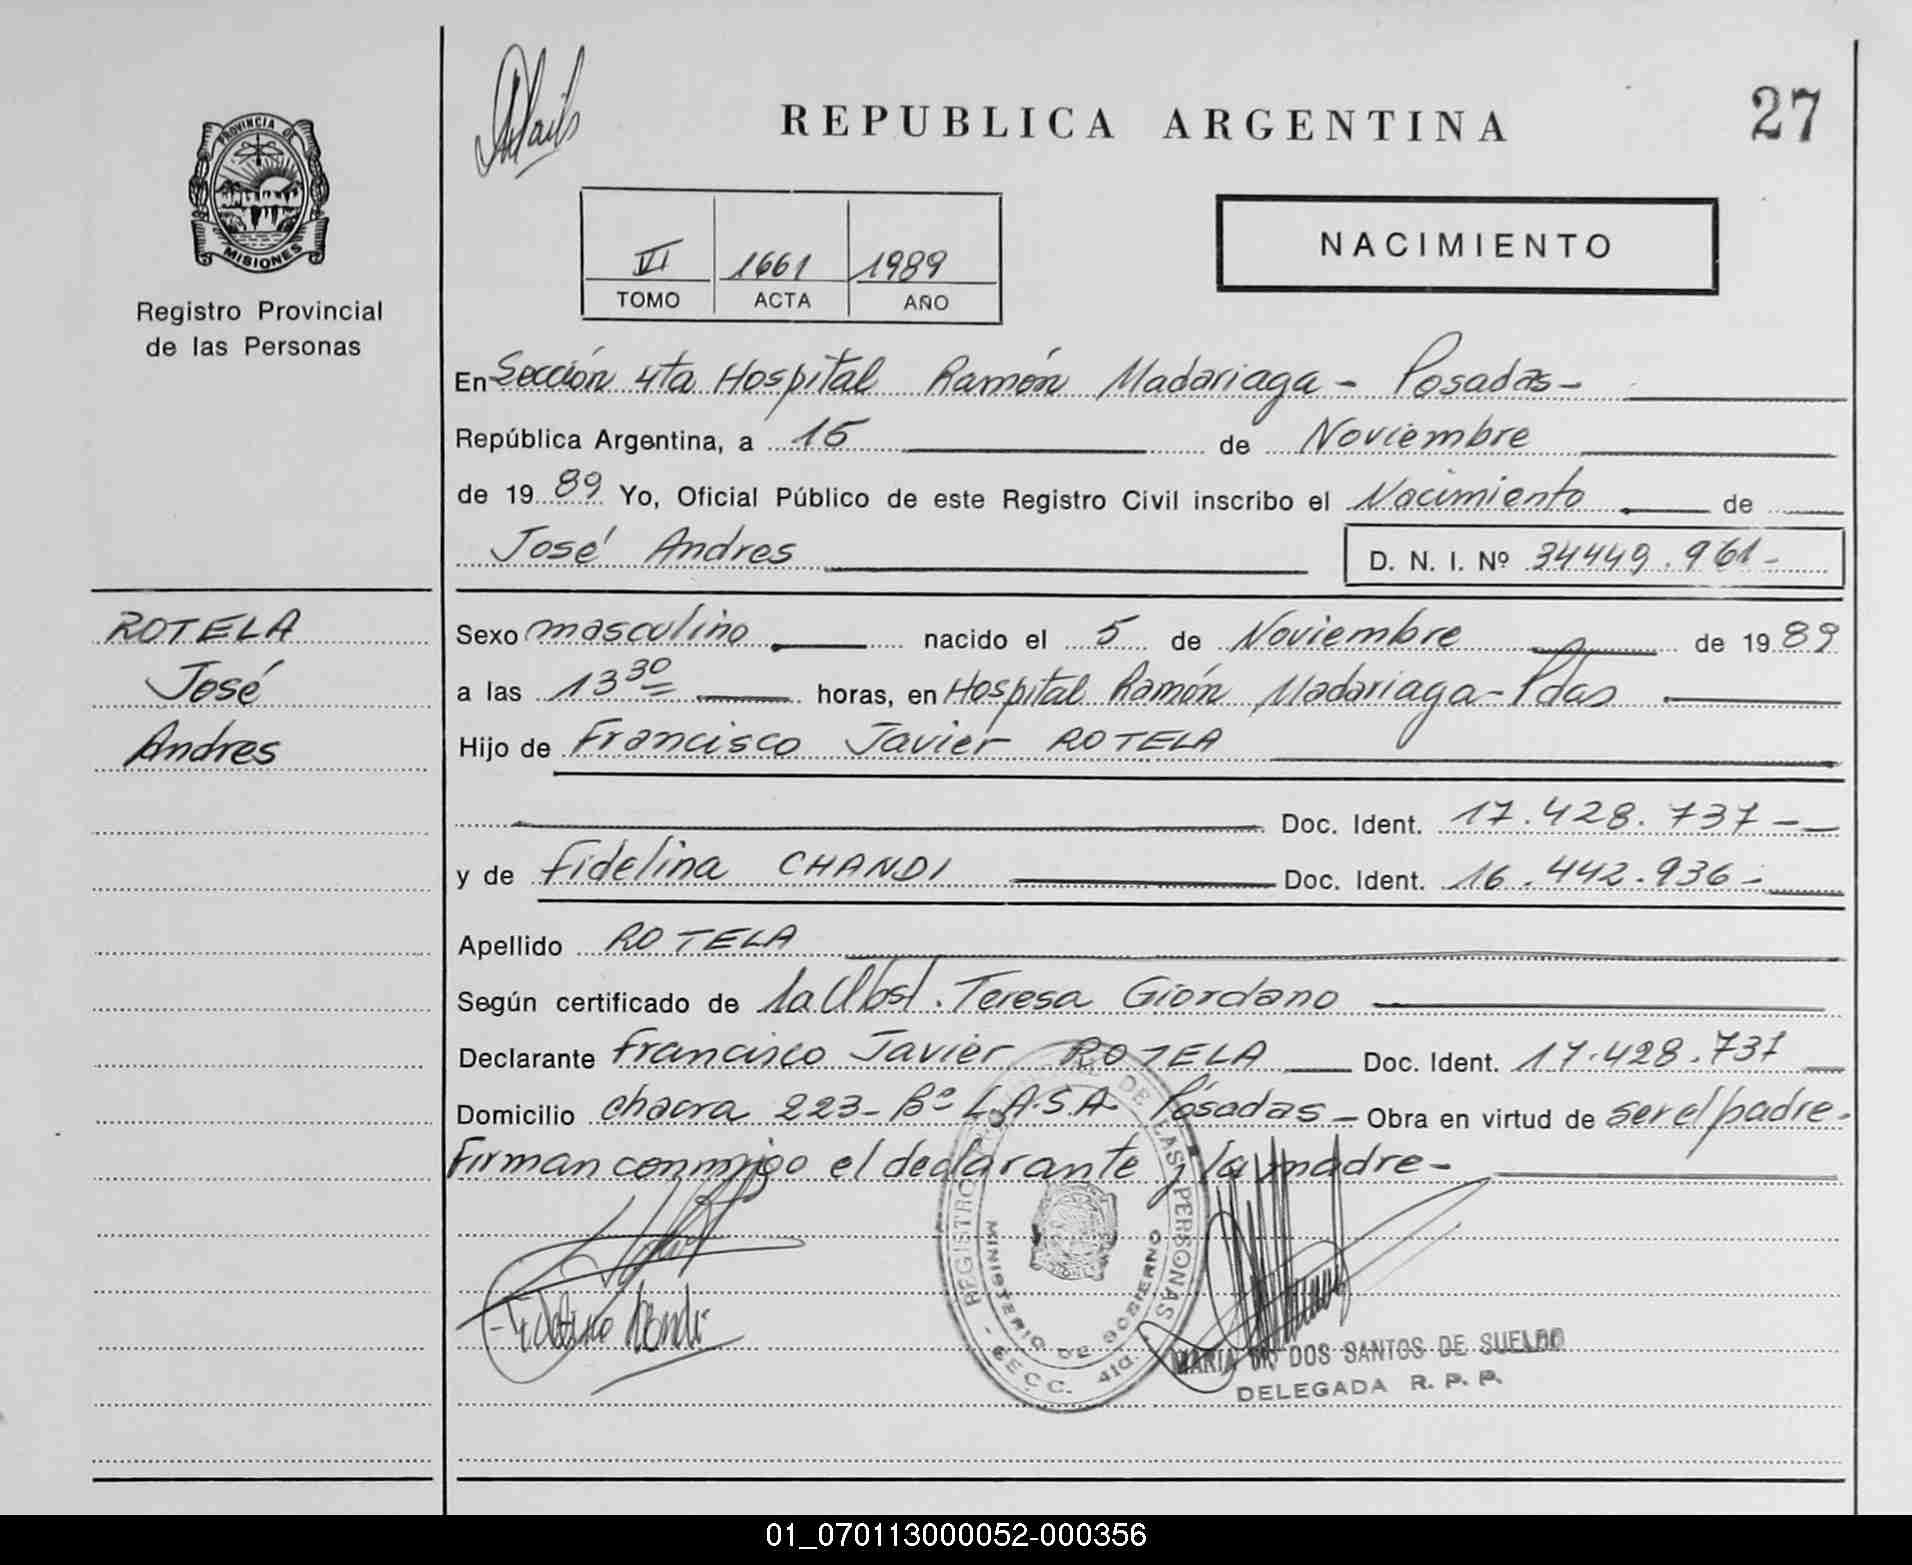 REPUBLICA ARGENTINA
27
PROVINCIA DE
MISIONES
Registro Provincial
de las Personas
NACIMIENTO
VI 1661 1989
TOMO ACTA AÑO
En Sección 4ta Hospital Ramón Madariaga - Posadas -
República Argentina, a 15 de Noviembre
de 1989 Yo, Oficial Público de este Registro Civil inscribo el Nacimiento de
José Andres D. N. I. Nº 34449.961-
ROTELA
José
Andres
Sexo masculino nacido el 5 de Noviembre de 1989
a las 13 30 horas, en Hospital Ramón Madariaga - Pdas
Hijo de Francisco Javier ROTELA
Doc. Ident. 17.428.737 -
y de Fidelina CHANDI Doc. Ident. 16.442.936 -
Apellido ROTELA
Según certificado de la Obst. Teresa Giordano
Declarante Francisco Javier ROTELA Doc. Ident. 17.428.737
Domicilio chacra 223 - Bº L.A.S.A. Posadas - Obra en virtud de ser el padre.
Firman conmigo el declarante y la madre -
REGISTRO PROVINCIAL DE LAS PERSONAS
MINISTERIO DE GOBIERNO
- SECC. 4ta.
MARIA DOS SANTOS DE SUELDO
DELEGADA R. P. P.
01_070113000052-000356